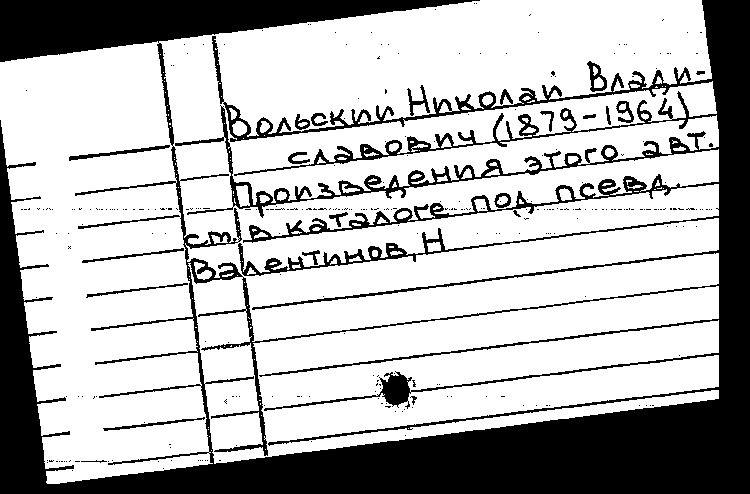 Вольский, Николай Влади-
славович (1879-1964)
Произведения этого авт.
см. в каталоге под псевд.
Валентинов, Н